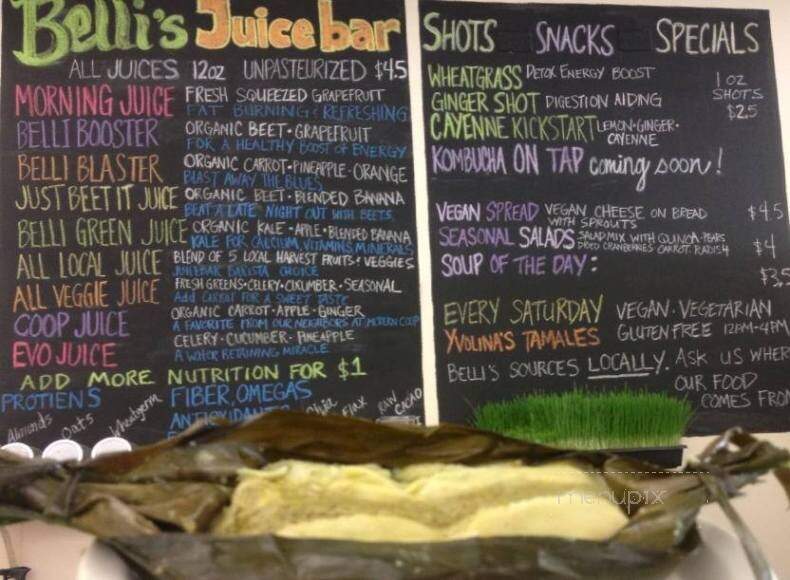 Belli's Juice bar
ALL JUICES 12oz UNPASTEURIZED $4.5
MORNING JUICE FRESH SQUEEZED GRAPEFRUIT
FAT BURNING & REFRESHING
BELLI BOOSTER ORGANIC BEET • GRAPEFRUIT
FOR A HEALTHY BOOST OF ENERGY
BELLI BLASTER ORGANIC CARROT • PINEAPPLE • ORANGE
BLAST AWAY THE BLUES
JUST BEET IT JUICE ORGANIC BEET • BLENDED BANANA
BEAT A LATE NIGHT OUT WITH BEETS
BELLI GREEN JUICE ORGANIC KALE • APPLE • BLENDED BANANA
KALE FOR CALCIUM, VITAMINS MINERALS
ALL LOCAL JUICE BLEND OF 5 LOCAL HARVEST FRUITS & VEGGIES
JUICEBAR BARISTA CHOICE
ALL VEGGIE JUICE FRESH GREENS • CELERY • CUCUMBER • SEASONAL
Add CARROT FOR A SWEET TASTE
COOP JUICE ORGANIC CARROT • APPLE • GINGER
A FAVORITE FROM OUR NEIGHBORS AT MODERN COOP
EVO JUICE CELERY • CUCUMBER • PINEAPPLE
A WATER RETAINING MIRACLE
ADD MORE NUTRITION FOR $1
PROTIENS FIBER, OMEGAS
ANTIOXIDANT
Almonds Oats Wheatgerm Chia Flax RAW CACAO
SHOTS SNACKS SPECIALS
WHEATGRASS DETOX ENERGY BOOST
GINGER SHOT DIGESTION AIDING
CAYENNE KICKSTART LEMON • GINGER • CAYENNE
1 OZ SHOTS $2.5
KOMBUCHA ON TAP coming soon!
VEGAN SPREAD VEGAN CHEESE ON BREAD WITH SPROUTS $4.5
SEASONAL SALADS SALAD MIX WITH QUINOA • PEARS
DRIED CRANBERRIES • CARROT • RADISH $4
SOUP OF THE DAY: $3.5
EVERY SATURDAY VEGAN • VEGETARIAN
YVOLINA'S TAMALES GLUTEN FREE 12PM-4PM
BELLI'S SOURCES LOCALLY. ASK US WHER
OUR FOOD
COMES FROM
menupix